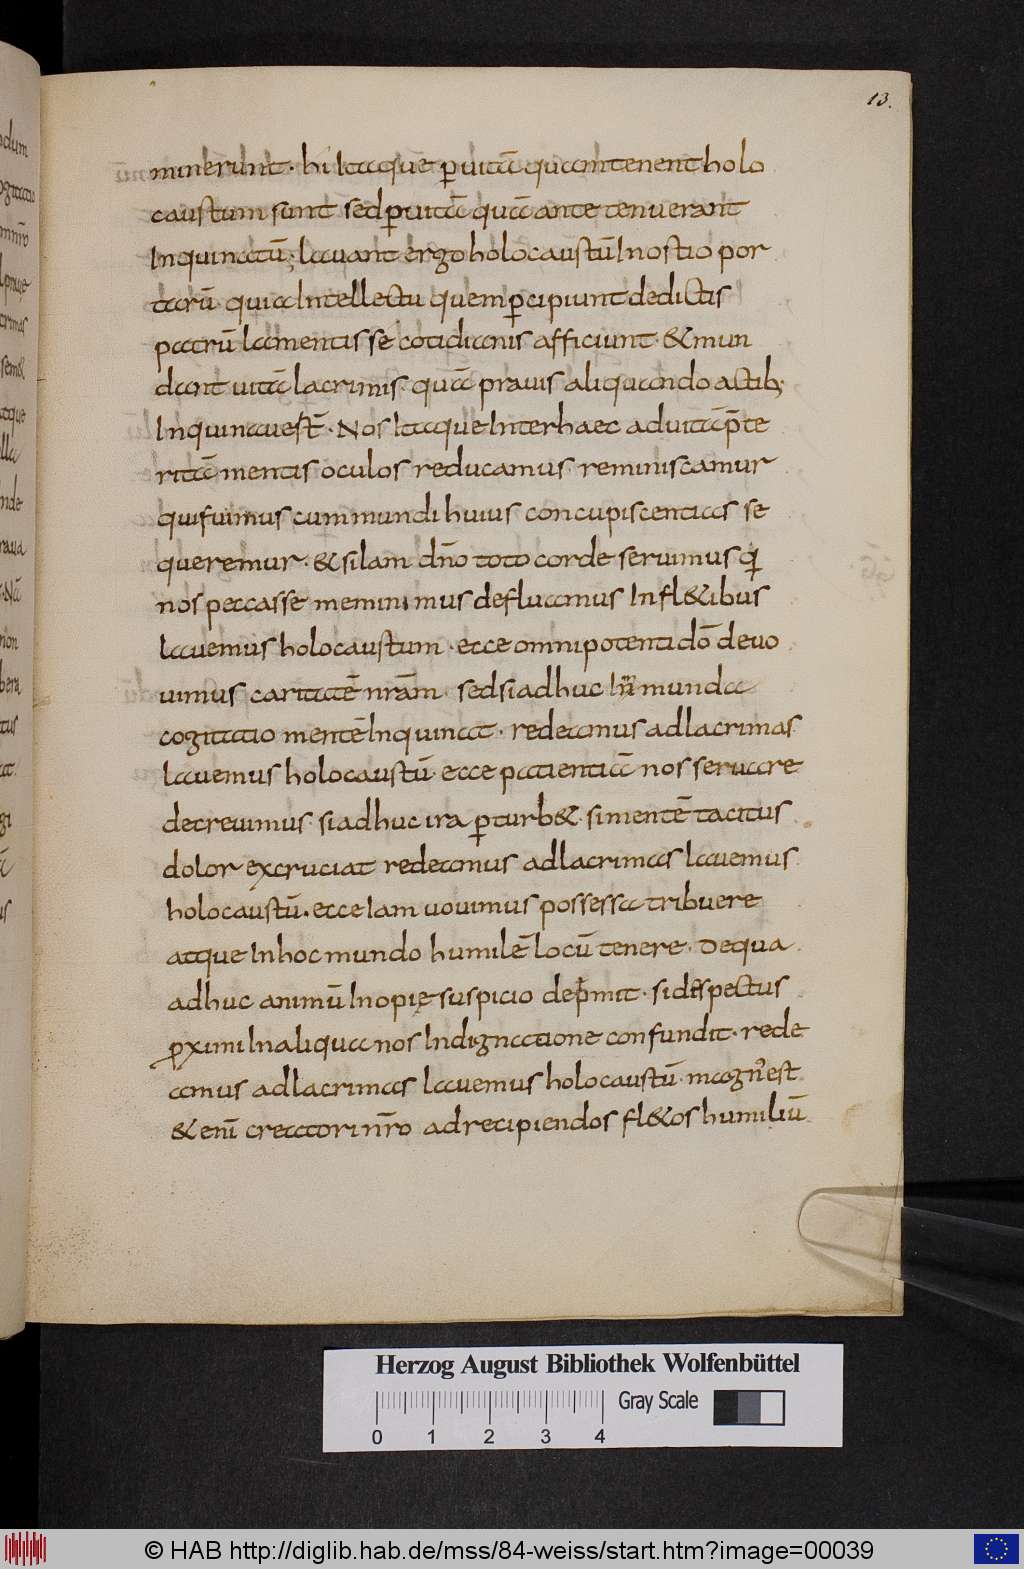 13.
minerunt · hi Itaque ꝑ uitā quam tenent holo
caustum sunt sed ꝑ uitā quā ante tenuerant
Inquinatū; lauant ergo holocaustū In ostio por
tarū · quia Intellectu quem ꝑcipiunt de dictis
patrū lamentis se cotidianis afficiunt · & mun
dant uitā lacrimis · quā prauis aliquando actib;
Inquinauer̄ · Nos Itaque Inter haec ad uitā p̄te
ritā mentis oculos reducamus · reminiscamur
qui fuimus cum mundi huius concupiscentias se
queremur · & si Iam dn̄o toto corde seruimus
nos peccasse meminimus defluamus In fl&ibus
lauemus holocaustum · ecce omnipotenti dō deuo
uimus caritatē nr̄am · sed si adhuc Inmunda
cogitatio mentē Inquinat · redeamus ad lacrimas
lauemus holocaustū · ecce patientiā nos seruare
decreuimus · si adhuc ira ꝑturb& · si mentē tacitus
dolor excruciat redeamus ad lacrimas lauemus
holocaustū · ecce Iam uouimus possessa tribuere
atque In hoc mundo humilē locū tenere · De qua
adhuc animū Inopię suspicio depͥmit · si despectus
ꝓximi In aliqua nos Indignatione confundit · rede
amus ad lacrimas lauemus holocaustū · magn̄ est
& enī creatori nr̄o ad recipiendos fl&os humiliū
Herzog August Bibliothek Wolfenbüttel
0 1 2 3 4
Gray Scale
© HAB http://diglib.hab.de/mss/84-weiss/start.htm?image=00039